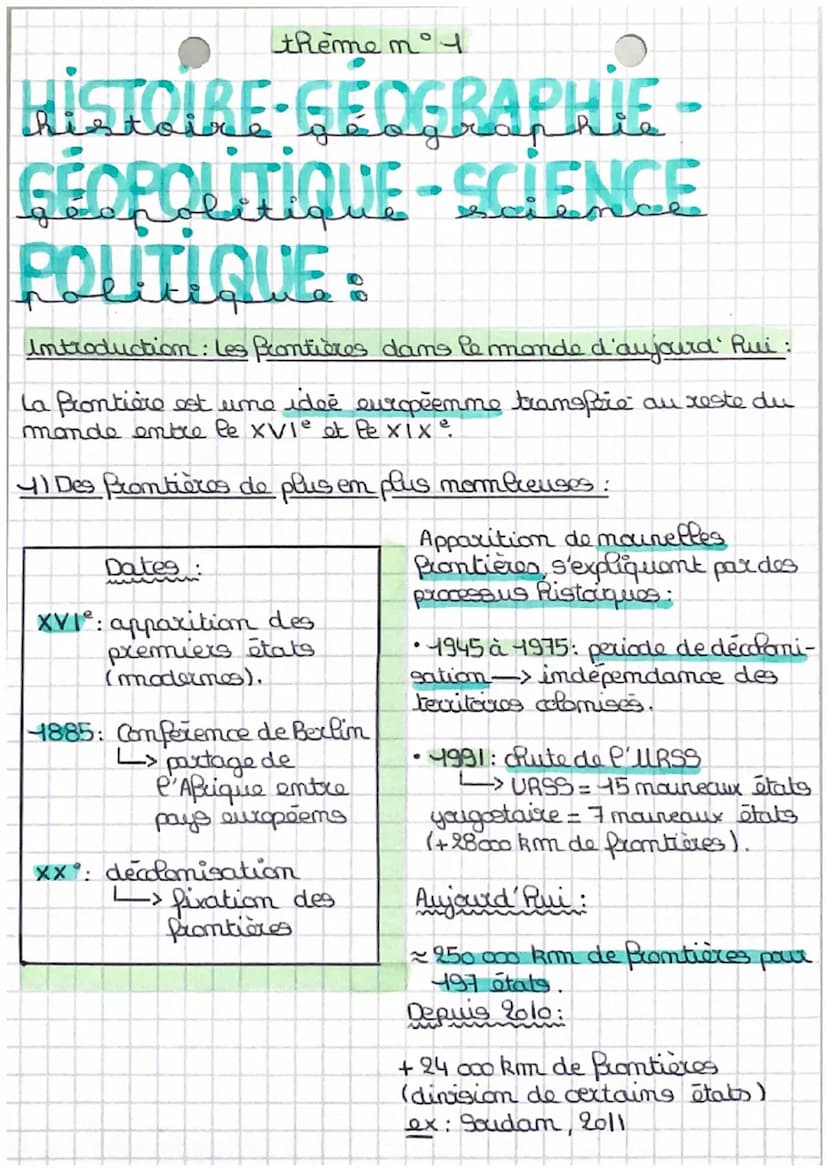 thème n°1
HISTOIRE-GÉOGRAPHIE-
histoire géographie
GÉOPOLITIQUE-SCIENCE
géopolitique science
POLITIQUE :
politique
Introduction : Les frontières dans le monde d'aujourd'hui :
La frontière est une ideé européenne transférée au reste du
monde entre le XVIe et le XIXe.
1) Des frontières de plus en plus nombreuses :
Dates :
XVIe : apparition des
premiers états
(modernes).
1885 : Conférence de Berlin
↳ partage de
l'Afrique entre
pays européens
XXe : décolonisation
↳ fixation des
frontières
Apparition de nouvelles
frontières, s'expliquant par des
processus historiques :
• 1945 à 1975 : periode de décoloni-
sation —> indépendance des
territoires colonisés.
• 1991 : chute de l'URSS
↳ URSS = 15 nouveaux états
yougoslaire = 7 nouveaux états
(+28000 km de frontières).
Aujourd'hui :
≈ 250 000 km de frontières pour
197 états.
Depuis 2010 :
+ 24 000 km de frontières
(division de certains états)
ex : Soudan, 2011